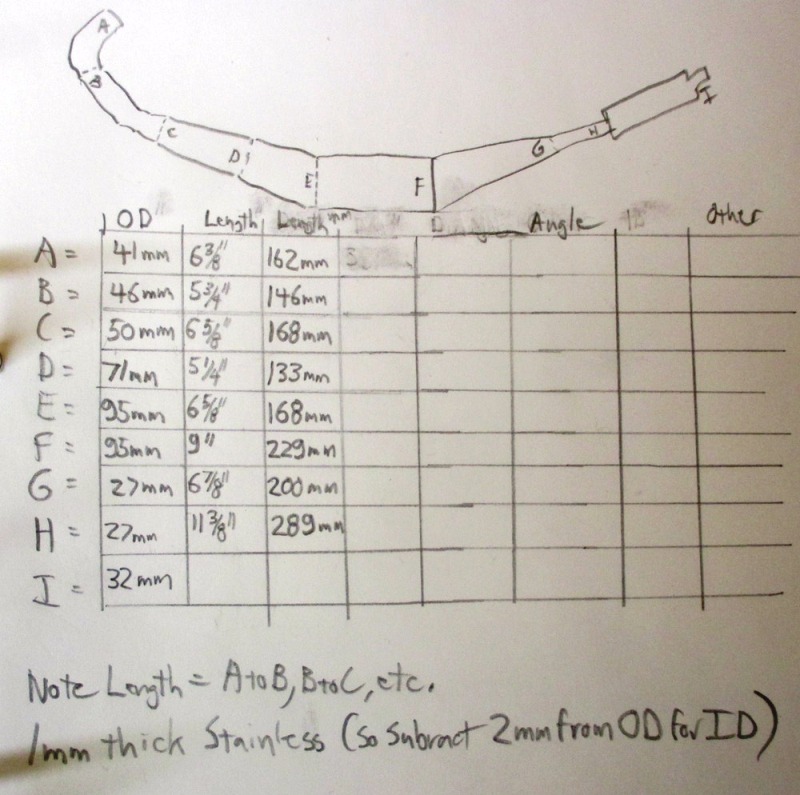 A
B
C
D
E
F
G
H
I
OD Length" Length mm Angle Other
A = 41mm 6 3/8" 162mm
B = 46mm 5 3/4" 146mm
C = 50mm 6 5/8" 168mm
D = 71mm 5 1/4" 133mm
E = 95mm 6 5/8" 168mm
F = 95mm 9" 229mm
G = 27mm 6 7/8" 200mm
H = 27mm 11 3/8" 289mm
I = 32mm
Note Length = A to B, B to C, etc.
1mm thick Stainless (so subract 2mm from OD for ID)